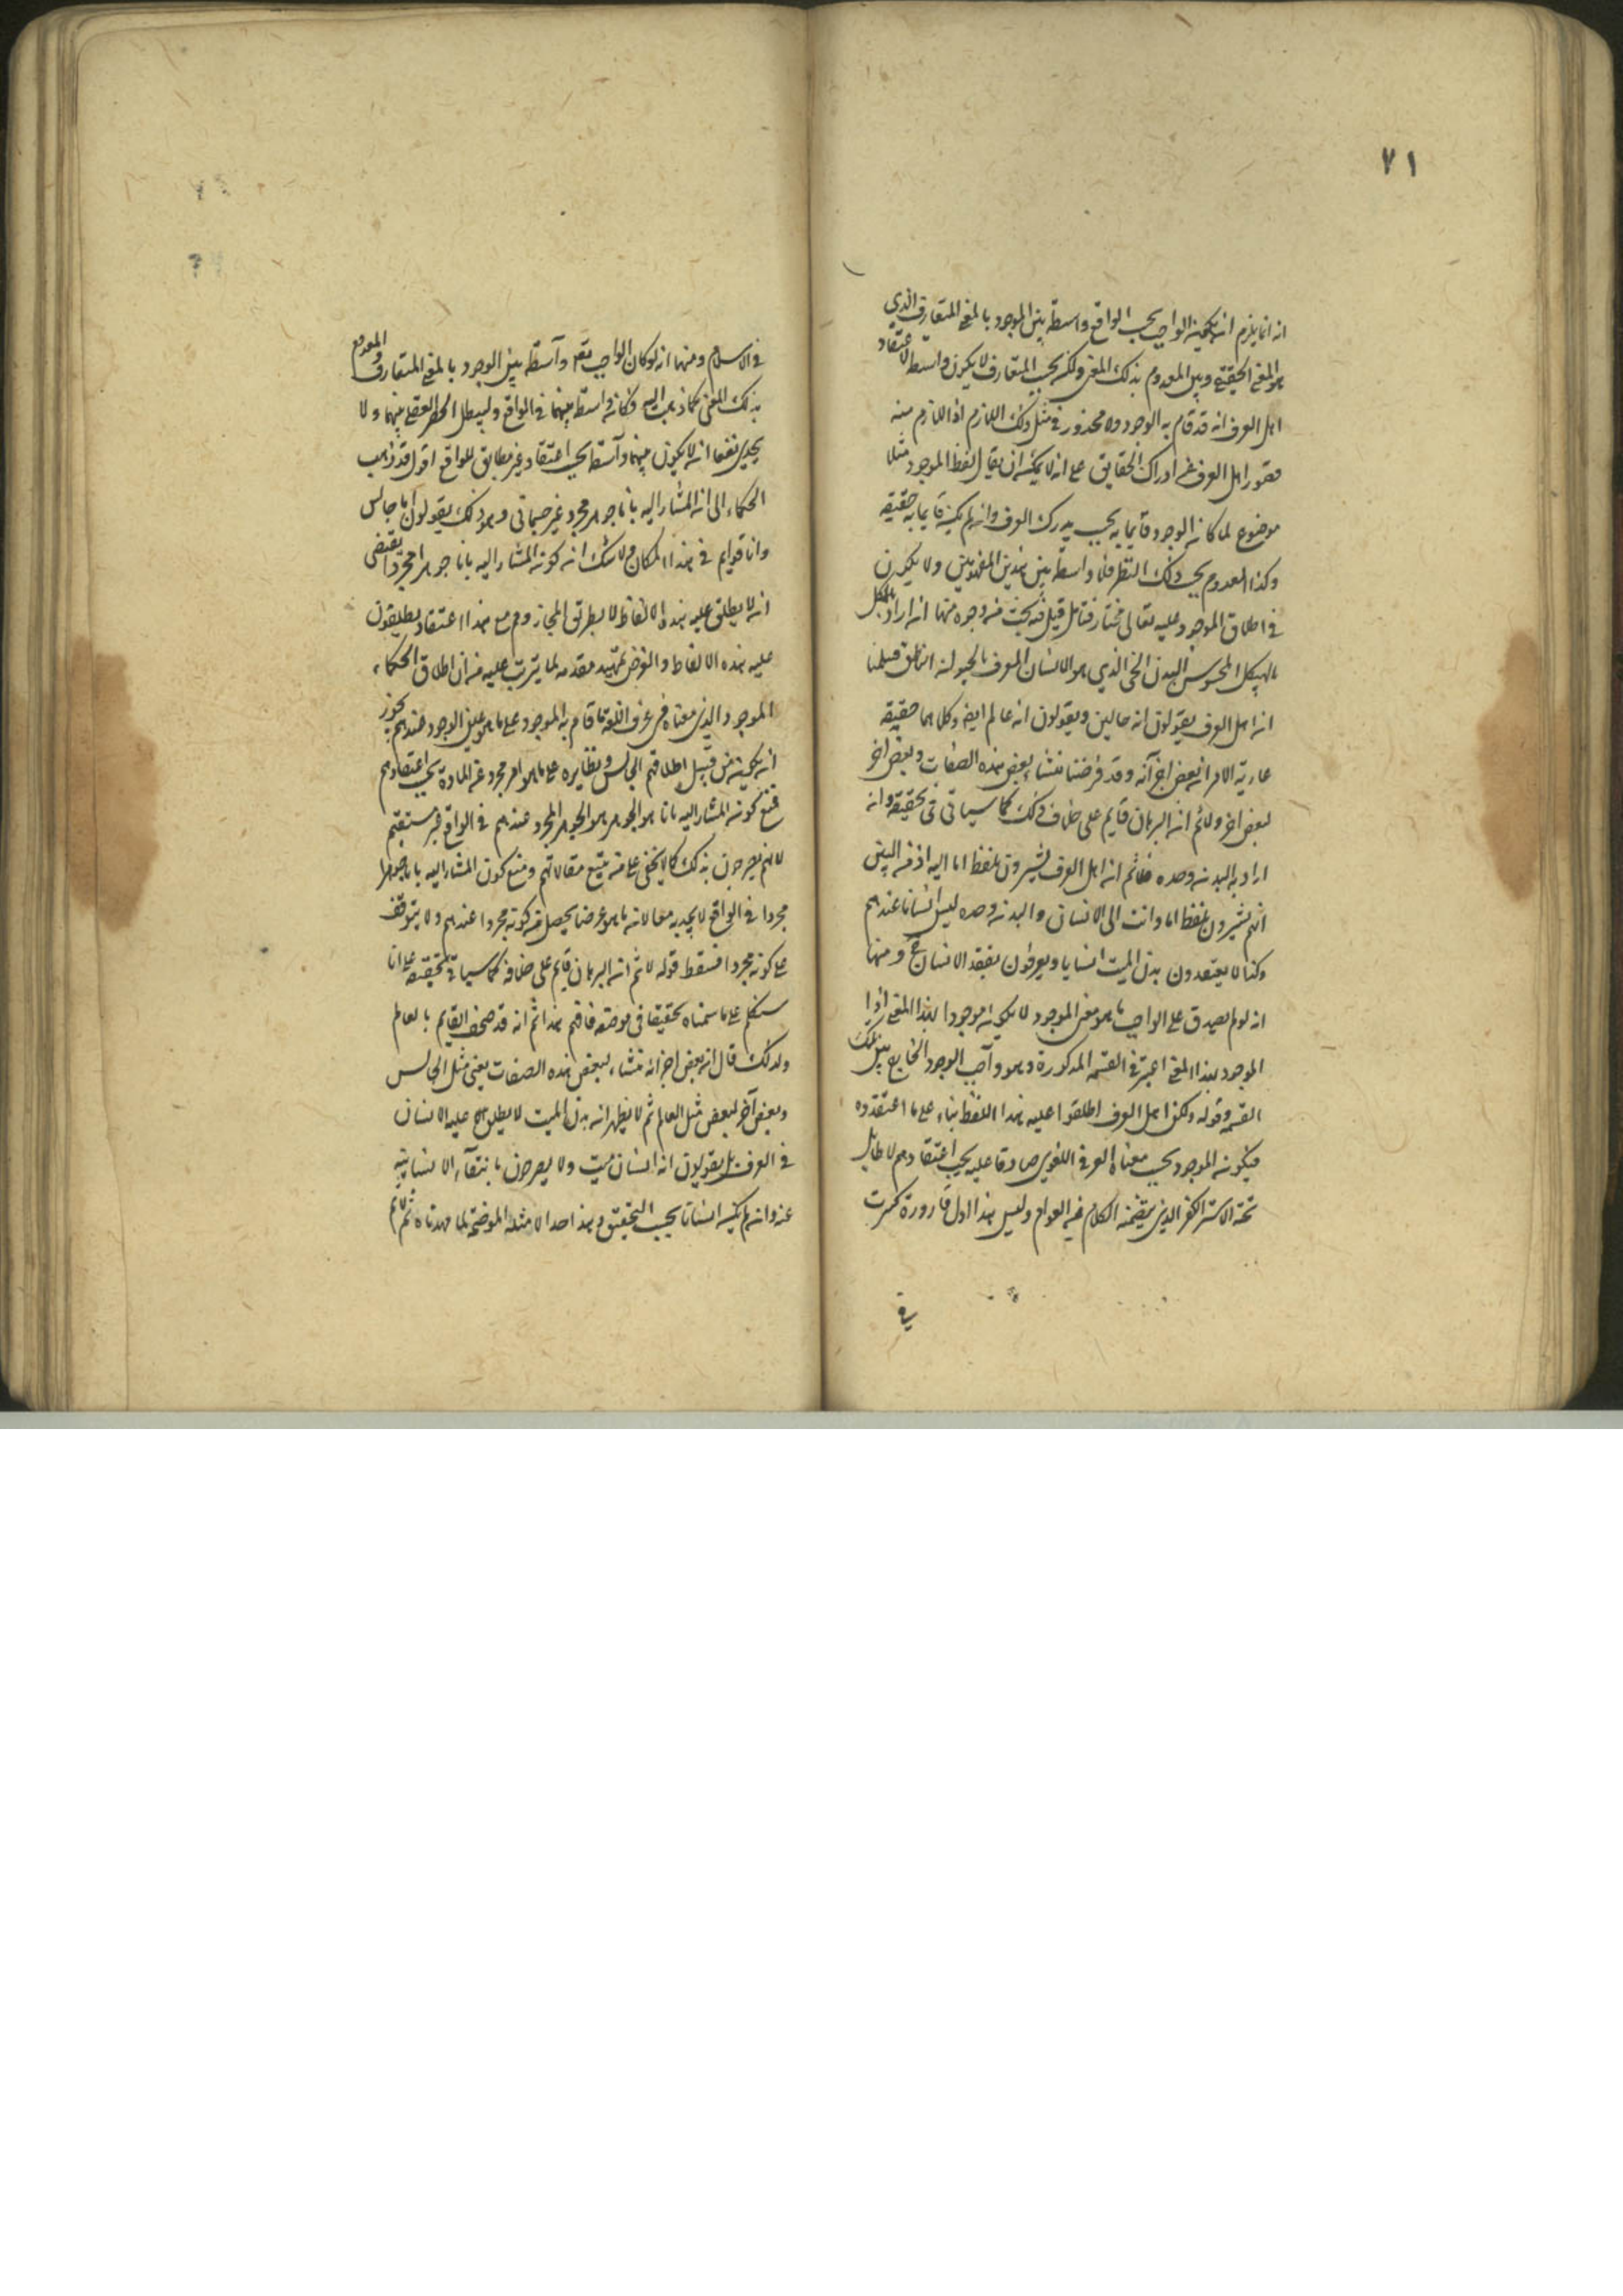 ٧١
انه انما يلزم ان يكون الواجب بحسب الواقع واسطة بين الموجود بالمعنى المتعارف الذي
هو المعنى الحقيقي وبين المعدوم بذلك المعنى ولكن بحسب المتعارف لا يكون واسطة لاعتقاد
اهل العرف انه قد قام به الوجود ولا محذور في مثل ذلك اللازم اذ اللازم منه
قصور اهل العرف عن ادراك الحقايق على انه لا يمكن ان يقال لفظ الموجود مثلا
موضوع لما كان الوجود قايما به بحسب مدرك العرف وان لم يكن قايما به حقيقة
وكذا المعدوم بحسب ذلك النظر فلا واسطة بين هذين المفهومين ولا يكون
في اطلاق الموجود عليه تعالى مختار فتامل قيل فيه بحث من وجوه منها انه اراد بالهيكل
الهيكل المحسوس البدن الحي الذي هو الانسان المعرف بالحيوان الناطق فسلمنا
ان اهل العرف يقولون انه جالس ويقولون انه عالم ايضا وكلاهما حقيقة
غاية الامر ان بعض اجزائه وقد فرضنا منشأ لبعض هذه الصفات وبعض اخر
لبعض اخر ولا ثم ان البرهان قايم على خلاف ذلك كما سياتي تحقيقه وان
اراد به البدن وحده فلا ثم ان اهل العرف يشيرون بلفظ انا اليه اذ من البين
انهم يشيرون بلفظ انا وانت الى الانسان والبدن وحده ليس انسانا عندهم
وكذا لا يعتقدون بدن الميت انسانا ويعرفون بفقد الانسان ح ومنها
انه لو لم يصدق على الواجب ما هو معنى الموجود لا يكون موجودا بهذا المعنى اذا
الموجود بهذا المعنى اعتبر في القسمة المذكورة وهو واجب الوجود الخارج بين تلك
القسمة وقوله ولكن اهل العرف اطلقوا عليه هذا اللفظ بناء على ما اعتقدوه
فيكون الموجود بحسب معناه العرفي اللغوي صادقا عليه بحسب اعتقادهم لا طايل
تحته الا ستر الكفر الذي يتضمنه الكلام عن العوام وليس هذا اول قارورة كسرت
في
في الاسلام ومنها انه لو كان الواجب تعم واسطة بين الوجود بالمعنى المتعارف والمعدوم
بذلك المعنى كما ذهب اليه وكان واسطة بينهما في الواقع وليبطل الحصر العقلي بينهما ولا
يجدي نفعا ان لا يكون بينهما واسطة بحسب اعتقاد غير مطابق للواقع اقول قد ذهب
الحكماء الى ان المشار اليه بانا جوهر مجرد غير جسماني وهم مع ذلك يقولون انا جالس
وانا قوايم في هذا المكان ولا شك ان كون المشار اليه بانا جوهرا مجردا يقتضى
ان لا يطلق عليه هذه الالفاظ الا بطريق المجاز وهم مع هذا الاعتقاد يطلقون
عليه هذه الالفاظ والغرض تمهيد مقدمه لما يترتب عليه من ان اطلاق الحكماء
الموجود الذي معناه في عرف اللغة ما قام به الموجود على ما هو عين الوجود عندهم يجوز
ان يكون من قبيل اطلاقهم الجالس ونظايره على ما هو امر مجرد عن المادة بحسب اعتقادهم
فمنع كون المشار اليه بانا هو الجوهر هو الجوهر المجرد عندهم في الواقع غير مستقيم
لانهم يصرحون بذلك كما لا يخفى على من يتتبع مقالاتهم ومنع كون المشار اليه بانا جوهرا
مجردا في الواقع لا يجديه معا لانه ما هو غرضنا يحصل من كونه مجردا عندهم ولا يتوقف
على كونه مجردا فسقط قوله لا ثم ان البرهان قايم على خلافه كما سياتي تحقيقه على انا
سنتكلم على ما سمناه تحقيقا في موضعه فافهم هذا ثم انه قد صحف القايم بالعالم
ولذلك قال ان بعض اجزائه منشاء لبعض هذه الصفات يعنى مثل الجالس
وبعض آخر لبعض مثل العالم ثم لا يظهر ان بدن الميت لا يطلق عليه الانسان
في العرف بل يقولون انه انسان ميت ولا يصرحون بانتفاء الانسانية
عنه وان لم يكن انسانا بحسب التحقيق وهذا احد الامثلة الموضحة لما مهدناه ثم لا ثم